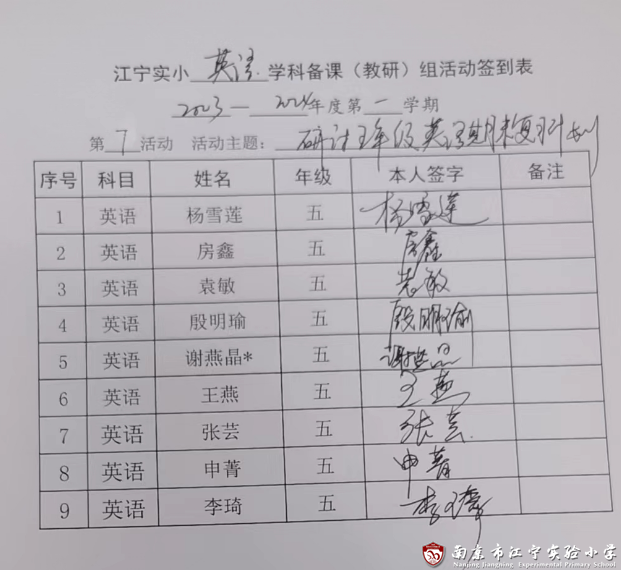 江宁实小 英语 学科备课（教研）组活动签到表
2023—2024年度第一学期
第7活动 活动主题：研讨五年级英语期末复习计划
序号 科目 姓名 年级 本人签字 备注
1 英语 杨雪莲 五 杨雪莲
2 英语 房鑫 五 房鑫
3 英语 袁敏 五 袁敏
4 英语 殷明瑜 五 殷明瑜
5 英语 谢燕晶* 五 谢燕晶
6 英语 王燕 五 王燕
7 英语 张芸 五 张芸
8 英语 申菁 五 申菁
9 英语 李琦 五 李琦
南京市江宁实验小学
Nanjing Jiangning Experimental Primary School